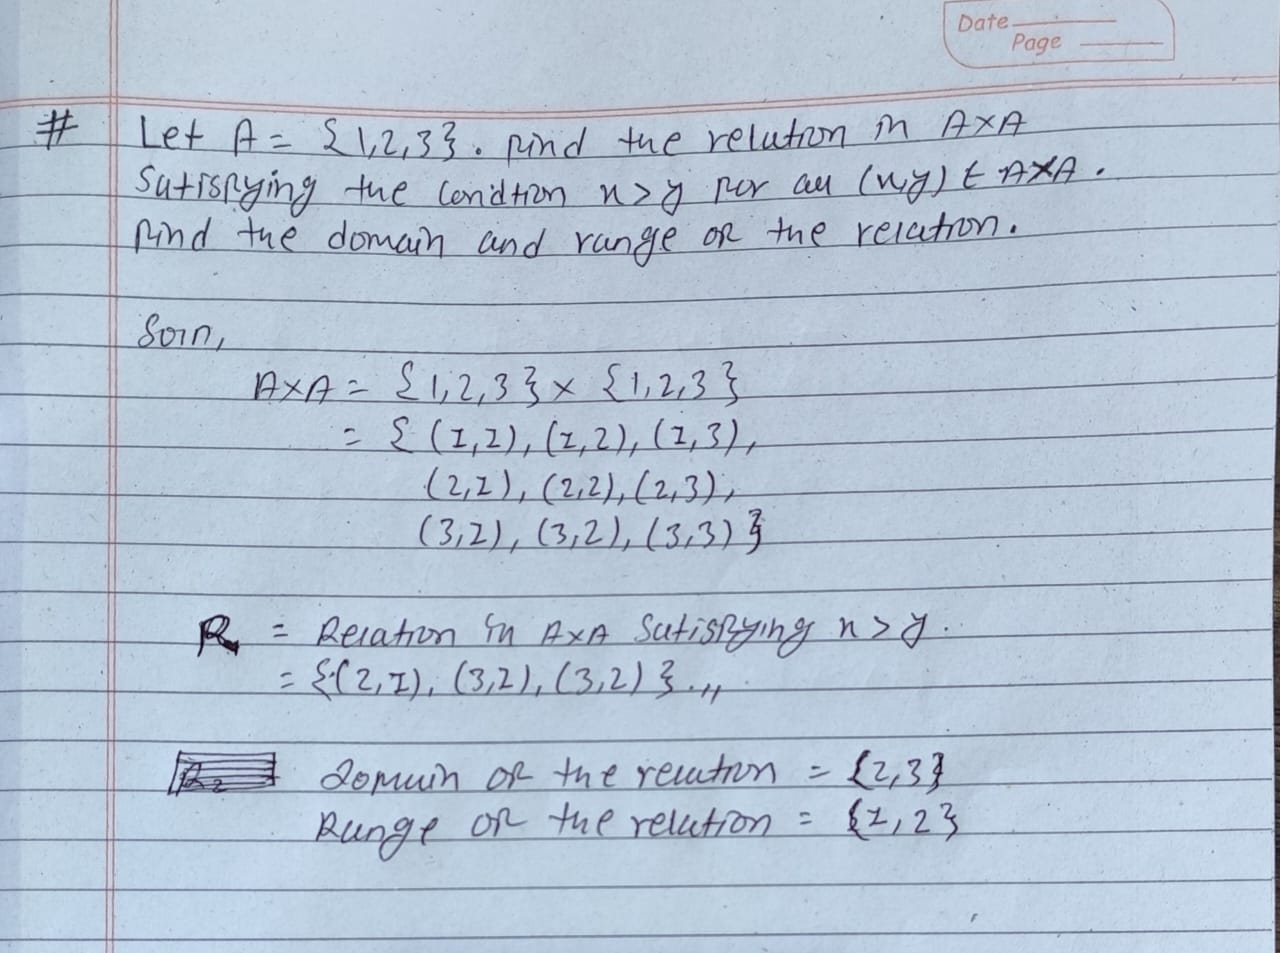 Date
Page
# Let A = {1,2,3}. Find the relation in A×A
satisfying the condtion x>y for all (x,y) ∈ A×A.
Find the domain and range of the relation.
Soln,
A×A = {1,2,3} × {1,2,3}
= { (1,1), (1,2), (1,3),
(2,1), (2,2), (2,3),
(3,1), (3,2), (3,3) }
R = Relation in A×A satisfying x>y.
= {(2,1), (3,1), (3,2) }.,,
Domain of the relation = {2,3}
Range of the relation = {1,2}